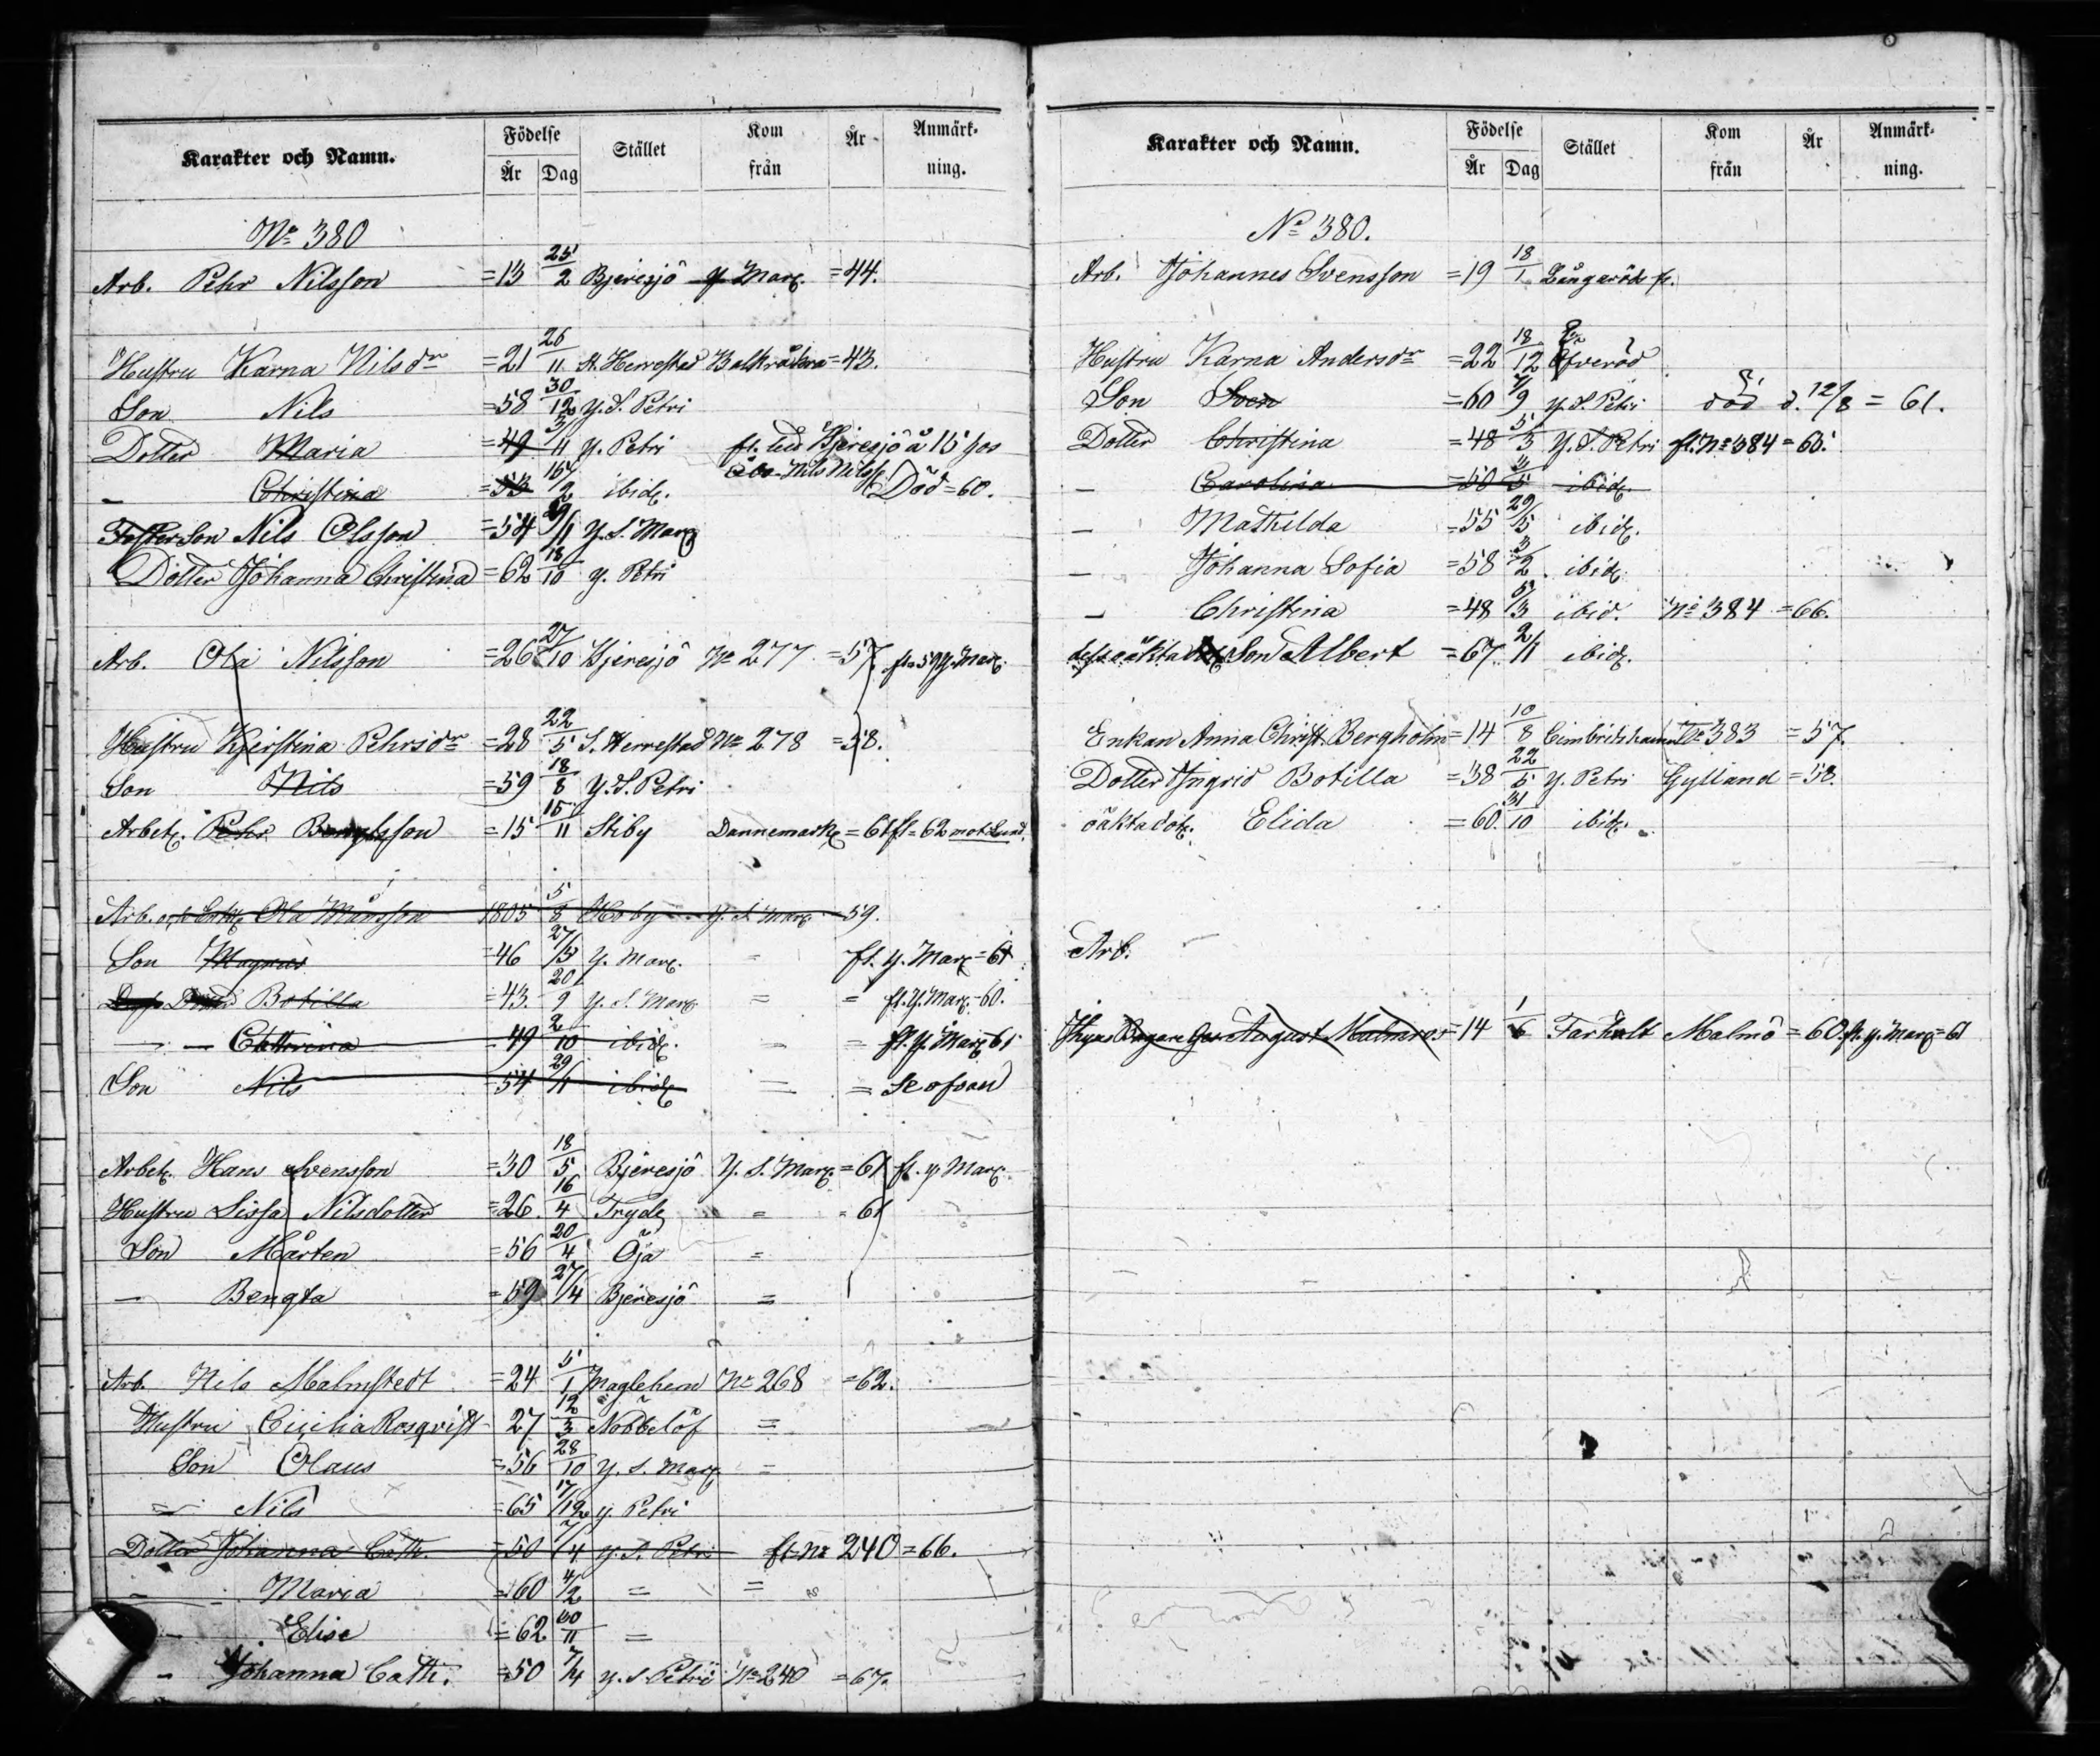 Karakter och Namn. Födelse År Dag Stället Kom från År Anmärkning.
No 380
Arb. Pehr Nilsson =13 25/2 Bjeresjö y. Marg. =44.
Hustru Karna Nilsdr =21 26/11 St. Herrestad Balkråkra =43.
Son Nils =58 30/12 y. S. Petri
Dotter Maria =49 /11 y. Petri fl. till Bjeresjö å 15 hos
Åbo Nils Nilss.
- Christina =53 16/2 ibid. Död =60.
Fosterson Nils Olsson =54 29/11 y. S. Marg
Dotter Johanna Christina =62 18/10 y. Petri
Arb. Ola Nilsson =26 27/10 Bjeresjö No 277 =57 fl. 59 y. Marg.
Hustru Kjerstina Pehrsdr =28 22/5 S. Herrestad No 278 =58.
Son Nils =59 18/8 y. S. Petri
Arbet. Pehr Bengtsson =15 15/11 Stiby Dannemark =61 fl =62 mot Lund.
Arb. och Enkl. Ola Månsson 1805 5/8 Hoby y. S. Marg. 59.
Son Magnus =46 27/5 y. Marg. = fl. y. Marg =61
Dotter Botilla =43. 20/9 y. S. Marg = = fl. y. Marg. =60.
- Cathrina =49 2/10 ibid. = = fl. y. Marg 61
Son Nils =54 29/11 ibid = = Se ofvan
Arbet. Hans Svensson =30 18/5 Bjeresjö y. S. Marg =61 fl. y. Marg.
Hustru Sissa Nilsdotter =26. 16/4 Tryde = =61
Son Mårten =56 20/4 Öja =
- Bengta =59 27/4 Bjeresjö =
Arb. Nils Malmstedt =24 5/1 Maglehem No 268 =62.
Hustru Cicilia Rosqvist 27 12/3 Nöbbelöf =
Son Olaus =56 28/10 y. S. Marg. =
= Nils =65 17/12 y. Petri
Dotter Johanna Cath. =50 7/4 y. S. Petri fl. No 240 =66.
- Maria =60 4/2 = =
- Elise =62 /11 =
- Johanna Cath. =50 7/4 y. S. Petri No 240 =67.
Karakter och Namn. Födelse År Dag Stället Kom från År Anmärkning.
No 380.
Arb. Johannes Svensson =19 18/1 Långaröd
Hustru Karna Andersdr =22 18/12 Öfveröd
Son Sven =60 7/9 y. S. Petri död d. 12/8 =61.
Dotter Christina =48 5/3 y. S. Petri fl. No 384 =65.
- Carolina =50 3/5 ibid.
- Mathilda =55 29/5 ibid.
- Johanna Sofia =58 3/2. ibid.
- Christina =48 5/3 ibid. No 384 =66.
dess oäkta Son Albert =67. 2/11 ibid.
Enkan Anna Christ. Bergholm =14 10/8 Cimbritshamn No 383 =57.
Dotter Ingrid Botilla =38 22/5 y. Petri Gylland =58.
oäkta dot. Elida =60. 31/10 ibid.
Arb.
August Malmros =14 1/6 Farhult Malmö =60 fl. y. Marg =61